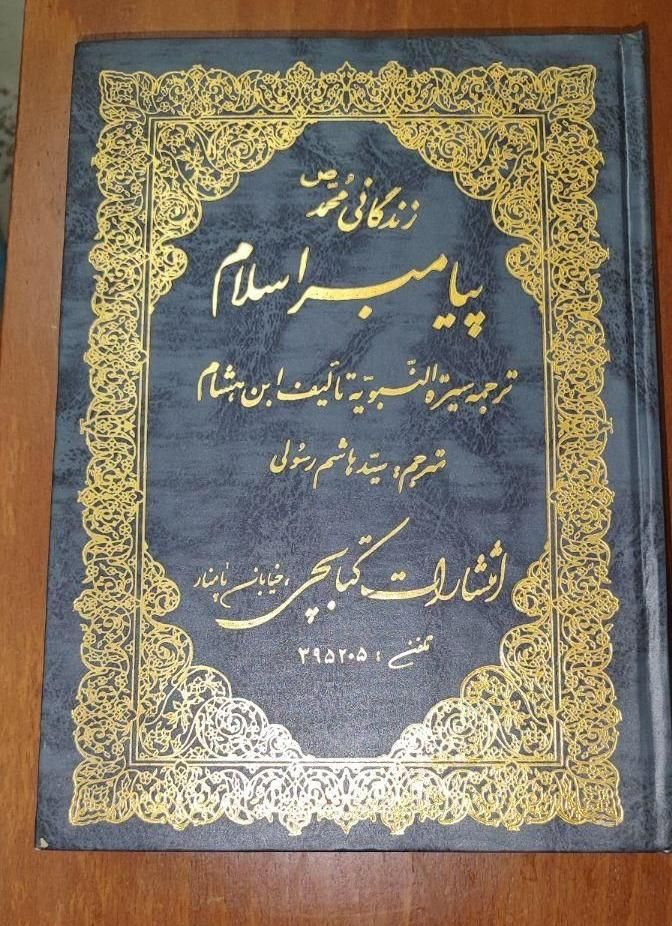 زندگانی محمّد ص
پیامبر اسلام
ترجمه سیرة النّبویّة تألیف ابن هشام
مترجم: سیّد هاشم رسولی
انتشارات کتابچی، خیابان پامنار
تلفن: ۳۹۵۲۰۵